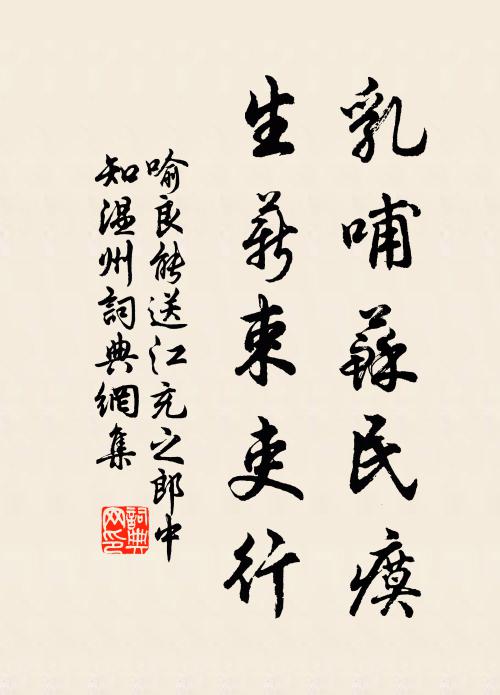 乳哺蘇民瘼
生薪束吏行
喻良能送江充之郎中
知溫州詞典網集
詞典
网印